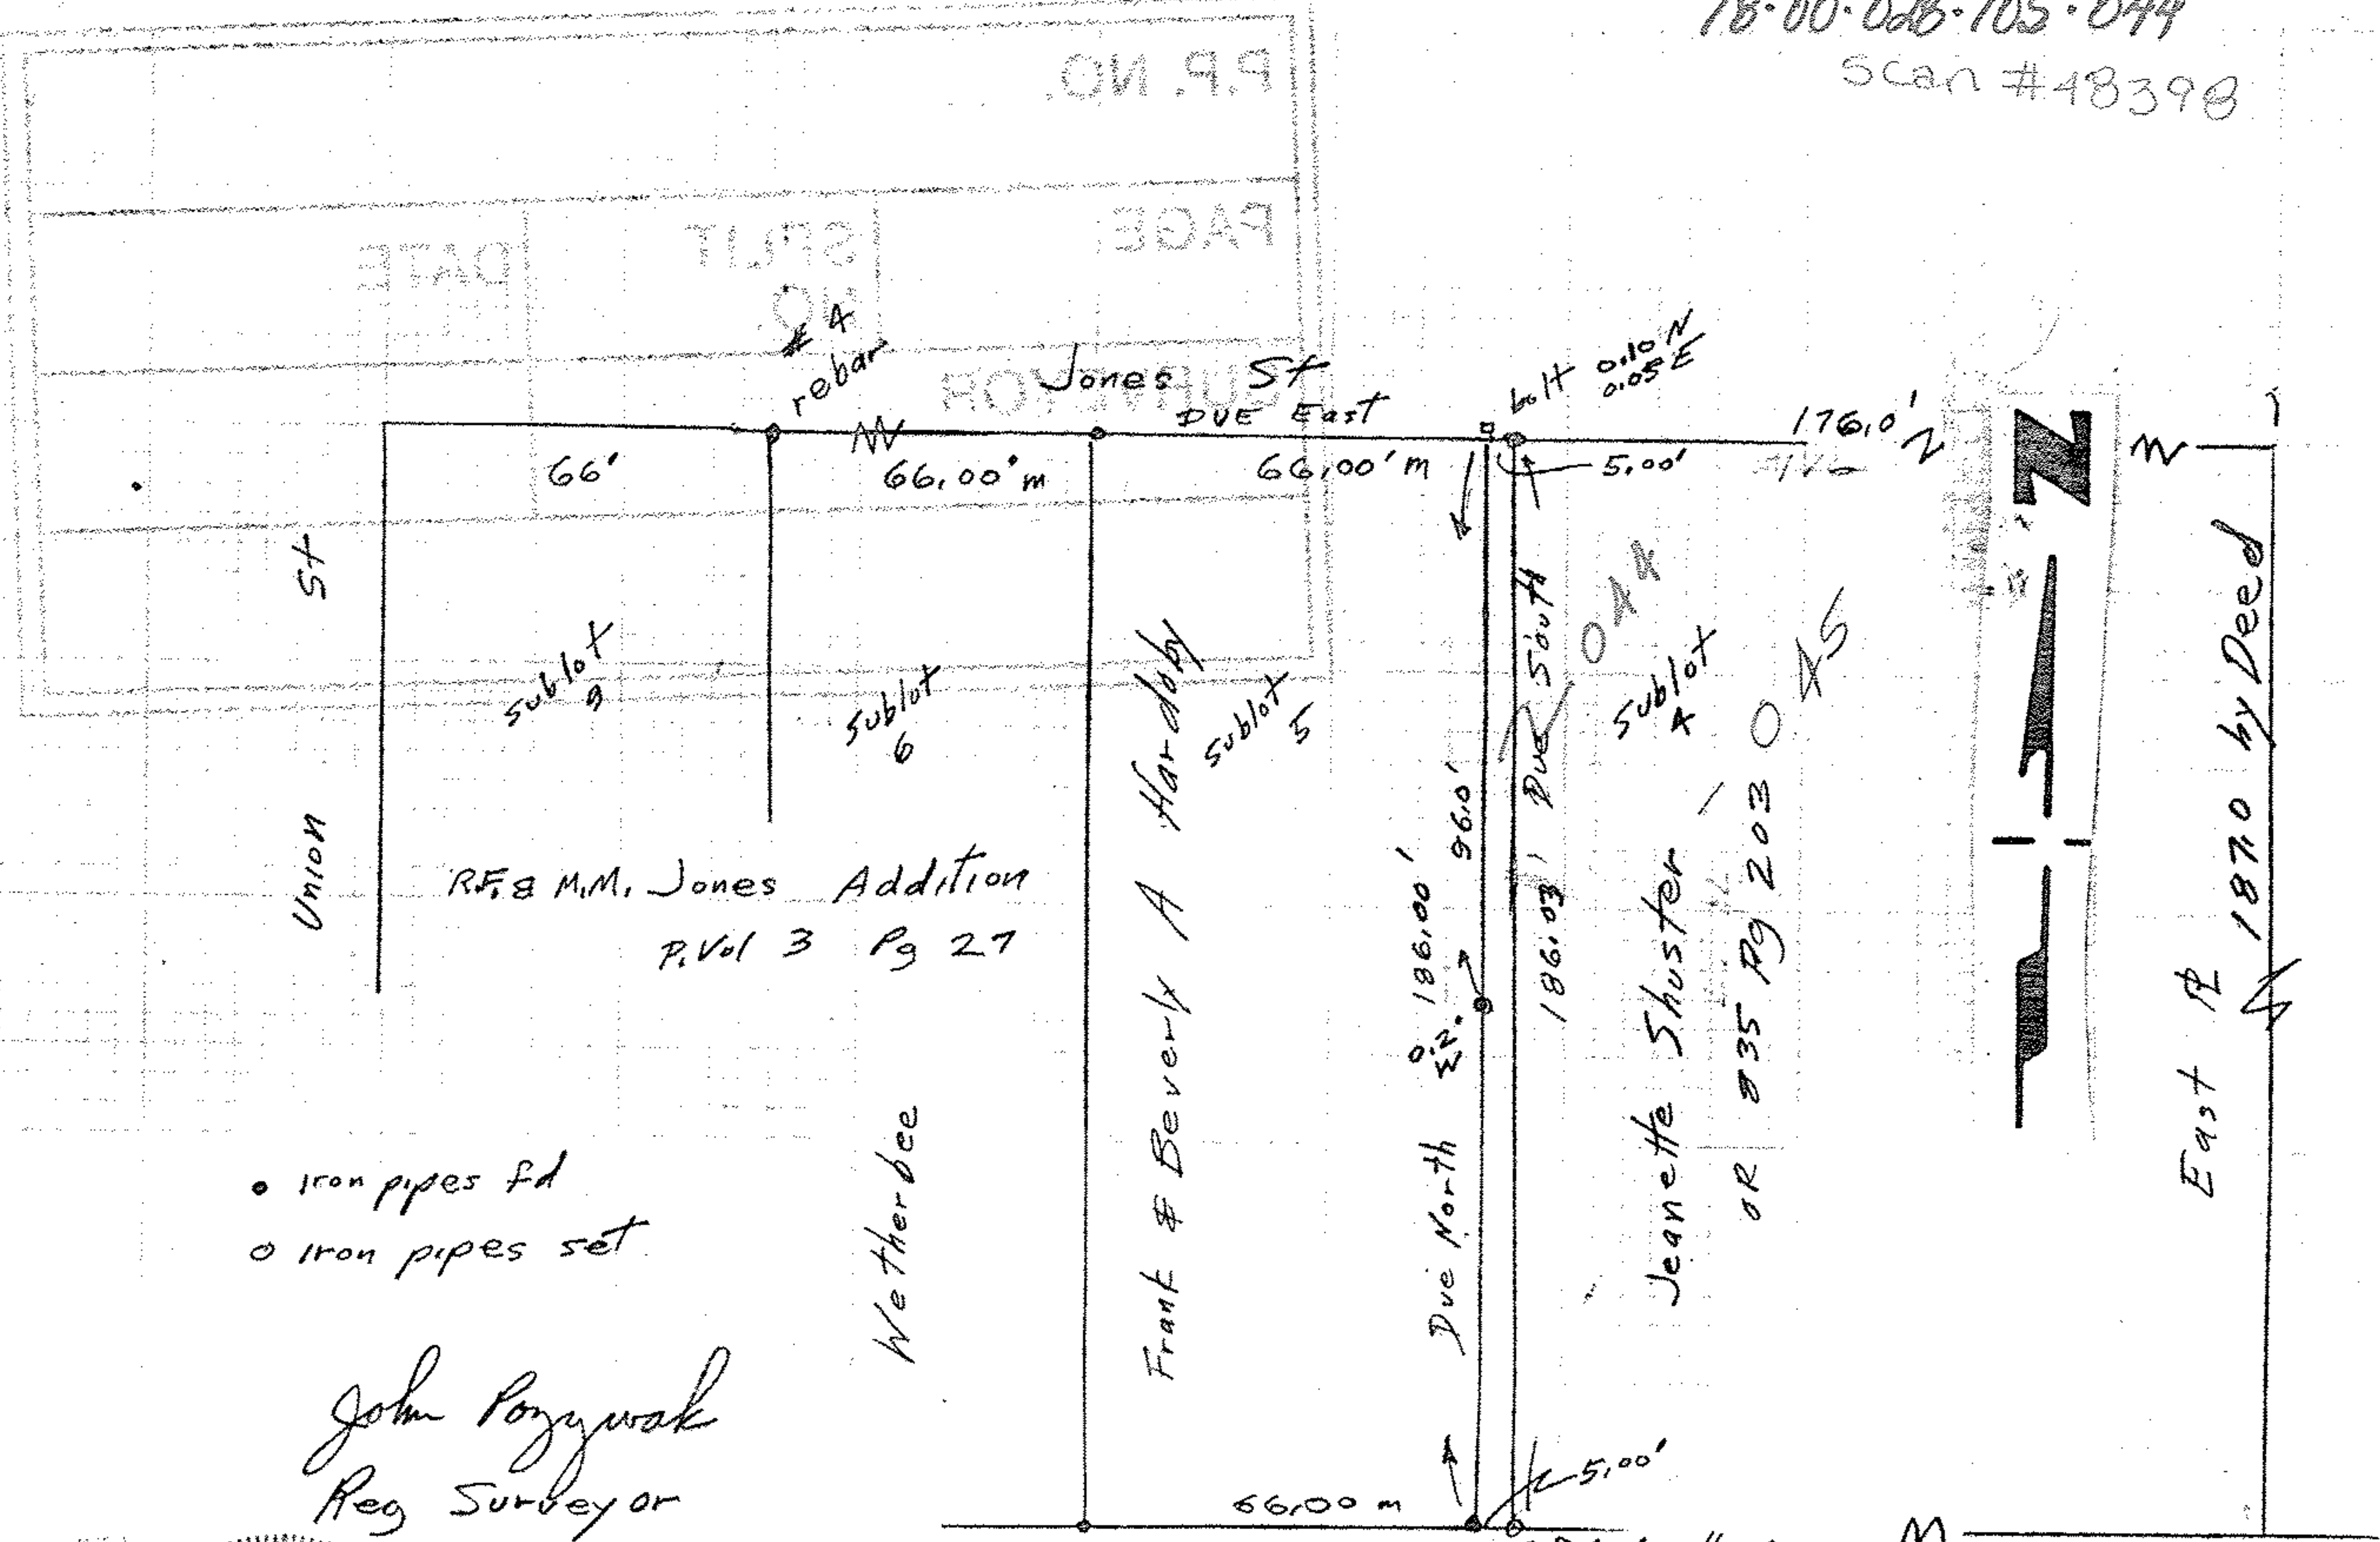 78-00-028-105-044
Scan #48398
P.P. NO.
PAGE
SPLIT NO.
DATE
SURVEYOR
# 4
rebar
Jones St
DUE East
bolt 0.10 N
0.05 E
176.0'
66'
66.00' m
66.00' m
5.00'
N
Union St
Sublot
6
Sublot
5
Sublot
4
044
045
R.F. & M.M. Jones Addition
P. Vol 3 Pg 27
Wetherbee
Frank & Beverly A Hardoby
Due North 186.00'
96.0'
186.03' Due South
Jeanette Shuster
OR 835 Pg 203
East PL 187.0 by Deed
• Iron pipes fd
o Iron pipes set
John Pozywak
Reg Surveyor
66.00 m
5.00'